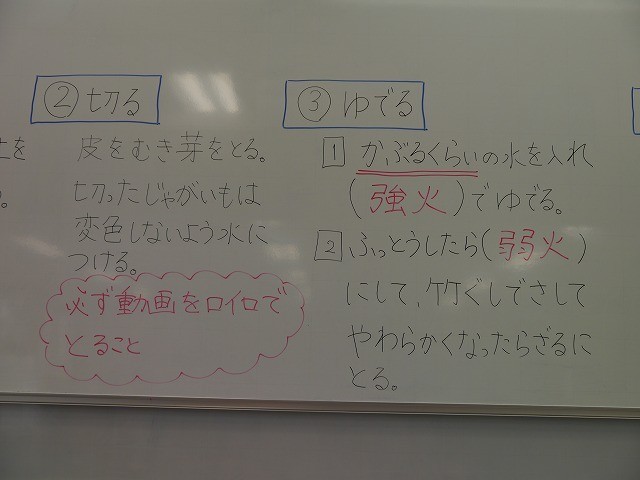 土を
。
②切る
皮をむき芽をとる。
切ったじゃがいもは
変色しないよう水に
つける。
必ず動画をロイロで
とること
③ゆでる
1 かぶるくらいの水を入れ
(強火)でゆでる。
2 ふっとうしたら(弱火)
にして、竹ぐしでさして
やわらかくなったらざるに
とる。